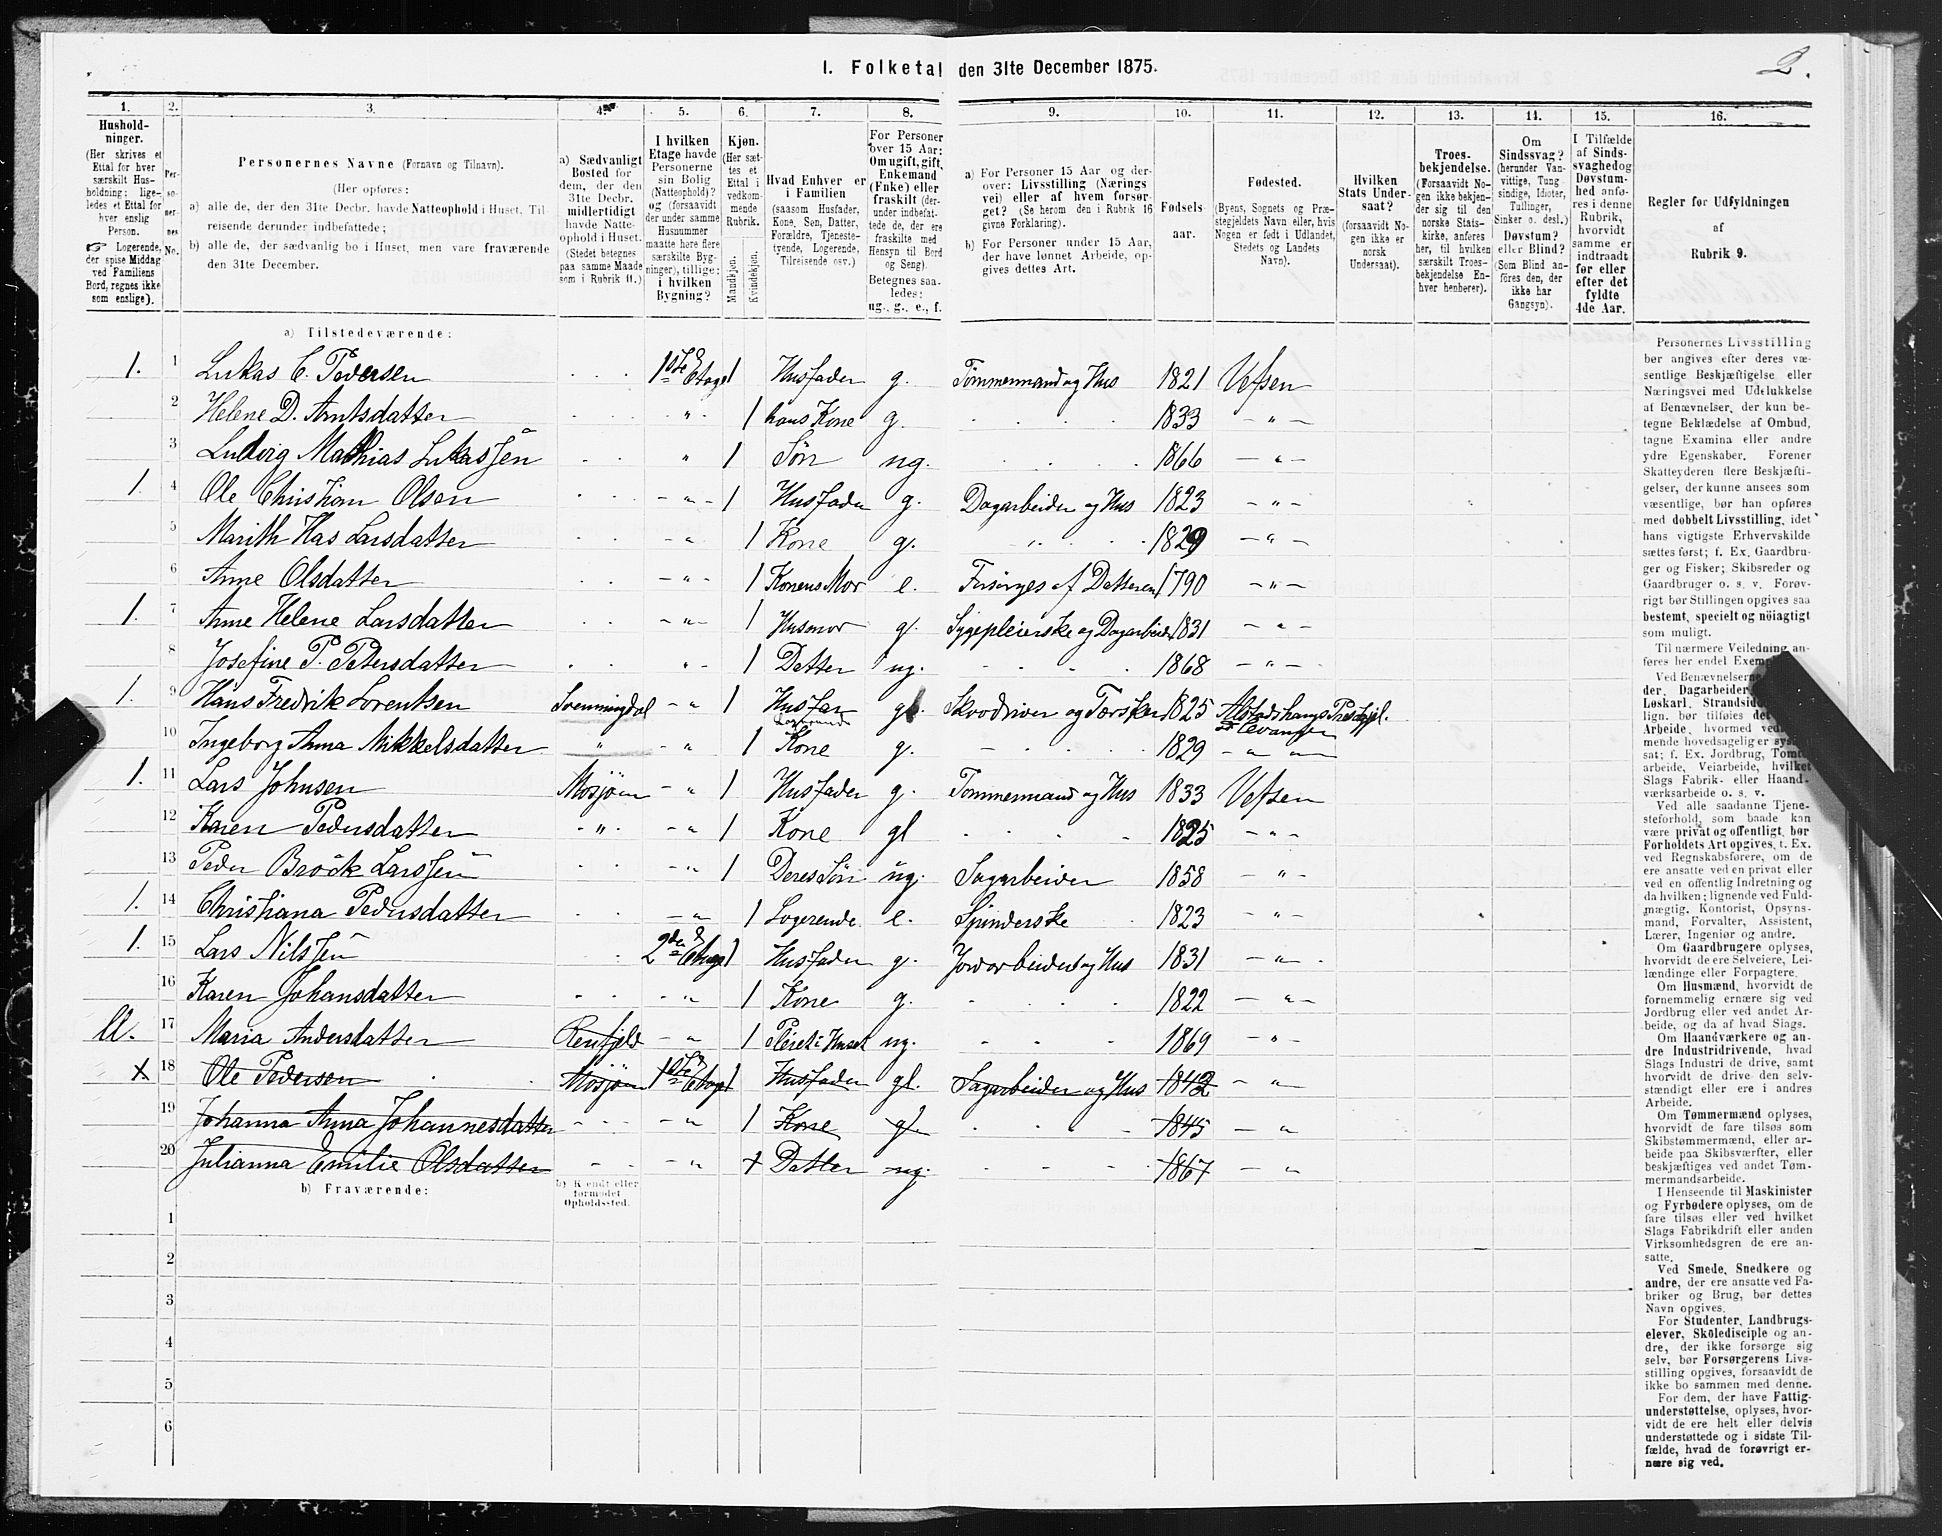 2.
1. Folketal den 31te December 1875.
1. 2. 3. 4. 5. 6. 7. 8. 9. 10. 11. 12. 13. 14. 15. 16.
Hushold-
ninger.
(Her skrives et
Ettal for hver
særskilt Hus-
holdning; lige-
ledes et Ettal for
hver enslig
Person.
☞ Logerende,
der spise Middag
ved Familiens
Bord, regnes ikke
som enslige).
Per-
so-
ner-
nes
No.
Personernes Navne (Fornavn og Tilnavn).
(Her opføres:
a) alle de, der den 31te Decbr. havde Natteophold i Huset, Til-
reisende derunder indbefattede;
b) alle de, der sædvanlig bo i Huset, men vare fraværende
den 31te December.
a) Sædvanligt
Bosted for
dem, der den
31te Decbr.
midlertidigt
havde Natte-
ophold i Huset.
(Stedet betegnes
paa samme Maade
som i Rubrik 11.)
I hvilken
Etage havde
Personerne
sin Bolig
(Natteophold)?
og (forsaavidt
der under samme
Husnummer
maatte høre flere
særskilte Byg-
ninger), tillige:
i hvilken
Bygning?
Kjøn.
(Her sæt-
tes et
Ettal i
vedkom-
mende
Rubrik.
Mandkjøn.
Kvindekjøn.
Hvad Enhver er
i Familien
(saasom Husfader,
Kone, Søn, Datter,
Forældre, Tjeneste-
tyende, Logerende,
Tilreisende osv.)
For Personer
over 15 Aar:
Om ugift, gift,
Enkemand
(Enke) eller
fraskilt (der-
under indbefat-
tede de, der ere
fraskilte med
Hensyn til Bord
og Seng).
Betegnes saa-
ledes:
ug., g., e., f.
a) For Personer 15 Aar og der-
over: Livsstilling (Nærings
vei) eller af hvem forsør-
get? (Se herom den i Rubrik 16
givne Forklaring).
b) For Personer under 15 Aar,
der have lønnet Arbeide, op-
gives dettes Art.
Fødsels-
aar.
Fødested.
(Byens, Sognets og Præ-
stegjeldets Navn eller, hvis
Nogen er født i Udlandet,
Stedets og Landets
Navn).
Hvilken
Stats Under-
saat?
(forsaavidt No-
gen ikke er
norsk
Undersaat).
Troes-
bekjendelse.
(Forsaavidt No-
gen ikke bekjen-
der sig til den
norske Stats-
kirke, anføres
her, til hvilken
særskilt Troes-
bekjendelse En-
hver henhører).
Om
Sindssvag?
(herunder Van-
vittige, Tung
sindige, Idioter,
Tullinger,
Sinker o. desl.)
Døvstum?
eller Blind?
(Som Blind an-
føres den, der
ikke har
Gangsyn).
I Tilfælde
af Sinds-
svaghed og
Døvstum-
hed anfø-
res i denne
Rubrik,
hvorvidt
samme er
indtraadt
før eller
efter det
fyldte
4de Aar.
Regler for Udfyldningen
af
Rubrik 9.
a) Tilstedeværende:
1. 1 Lukas C. Pedersen 1ste Etage 1 Husfader g. Tømmermand og Hus 1821 Vefsen
2 Helene D. Arntsdatter " 1 hans Kone g. 1833 - " -
3 Ludvig Mathias Lukassen " 1 Søn ug. 1866 - " -
1. 4 Ole Christian Olsen - " - 1 Husfader g. Dagarbeider og Hus 1823 - " -
5 Marith Kas Larsdatter - " 1 Kone g. " 1829 - " -
6 Anne Olsdatter - " - 1 Konens Mor e. Forsørges af Datteren 1790 - " -
1. 7 Anne Helene Larsdatter - " - 1 Husmor g. Sygepleierske og Dagarbeider 1831 - " -
8 Josefine P. Petersdatter " - 1 Datter ug. 1868 - " -
1. 9 Hans Fredrik Lorentsen Svenningdal - " 1 Husfar Logerende g. Skoddriver og Tørsker 1825 Alstadhaugs Præstgjl.
10 Ingeborg Anna Nikkelsdatter " - " 1 Kone g. 1829 - " "
1. 11 Lars Johnsen Mosjøen - " 1 Husfader g. Tømmermand og Hus 1833 Vefsen
12 Karen Pedersdatter - " - - " 1 Kone g 1825 - " -
13 Peder Brock Larssen - " 1 Deres Søn ug. Sagarbeider 1858 - " -
1. 14 Christiana Pedersdatter - " 1 Logerende e. Spinderske 1823 - " -
1. 15 Lars Nilssen 2den Etage 1 Husfader g. Jordarbeider og Hus 1831 - " -
16 Karen Johansdatter - " 1 Kone g. 1822 - " -
17 Maria Andersdatter Renfjeld - " 1 Pleiet i Huset ug. 1869 - " -
x 18 Ole Pedersen Mosjøen 1ste Etage 1 Husfader g. Sagarbeider og Hus 1842 - "
19 Johanna Anna Johannesdatter - " 1 Kone g. 1845 - "
20 Julianna Emilie Olsdatter - " 1 Datter ug. 1867 - "
b) Fraværende:
b) Kjendt eller
formodet
Opholdssted.
1
2
3
4
5
6
Personernes Livsstilling
bør angives efter deres væ-
sentlige Beskjæftigelse eller
Næringsvei med Udelukkelse
af Benævnelser, der kun be-
tegne Beklædelse af Ombud,
tagne Examina eller andre
ydre Egenskaber. Forener
Skatteyderen flere Beskjæfti-
gelser, der kunne ansees som
væsentlige, bør han opføres
med dobbelt Livsstilling, idet
hans vigtigste Erhvervskilde
sættes først; f. Ex. Gaardbru-
ger og Fisker; Skibsreder og
Gaardbruger o. s. v. Forøv-
rigt bør Stillingen opgives saa
bestemt, specielt og nøiagtigt
som muligt.
Til nærmere Veiledning an-
føres her endel Exemp
Ved Benævnelserne
der, Dagarbeider
Løskarl, Strandsid
lign. bør tilføies de
Arbeide, hvormed ved
mende hovedsagelig er sys
sat; f. Ex. Jordbrug, Tomt
arbeide, Veiarbeide, hvilket
Slags Fabrik- eller Haand-
værksarbeide o. s. v.
Ved alle saadanne Tjene-
steforhold, som baade kan
være privat og offentligt, bør
Forholdets Art opgives, t. Ex.
ved Regnskabsførere, om de
ere ansatte ved en privat eller
ved en offentlig Indretning og
da hvilken; lignende ved Fuld-
mægtig, Kontorist, Opsyns-
mand, Forvalter, Assistent,
Lærer, Ingeniør og andre.
Om Gaardbrugere oplyses,
hvorvidt de ere Selveiere, Lei-
lændinge eller Forpagtere.
Om Husmænd, hvorvidt de
fornemmelig ernære sig ved
Jordbrug eller ved andet Ar-
beide, og da af hvad Slags.
Om Haandværkere og an-
dre Industridrivende, hvad
Slags Industri de drive, samt
hvorvidt de drive den selv-
stændigt eller ere i andres
Arbeide.
Om Tømmermænd oplyses,
hvorvidt de fare tilsøs som
Skibstømmermænd, eller ar-
beide paa Skibsværfter, eller
beskjæftiges ved andet Tøm-
mermandsarbeide.
I Henseende til Maskinister
og Fyrbødere oplyses, om de
fare tilsøs eller ved hvilket
Slags Fabrikdrift eller anden
Virksomhedsgren de ere an-
satte.
Ved Smede, Snedkere og
andre, der ere ansatte ved Fa-
briker og Brug, bør dettes
Navn opgives.
For Studenter, Landbrugs-
elever, Skoledisciple og an-
dre, der ikke forsørge sig
selv, bør Forsørgerens Livs-
stilling opgives, forsaavidt de
ikke bo sammen med denne.
For dem, der have Fattig-
understøttelse, oplyses, hvor-
vidt de ere helt eller delvis
understøttede og i sidste Til-
fælde, hvad de forøvrigt er-
nære sig ved.